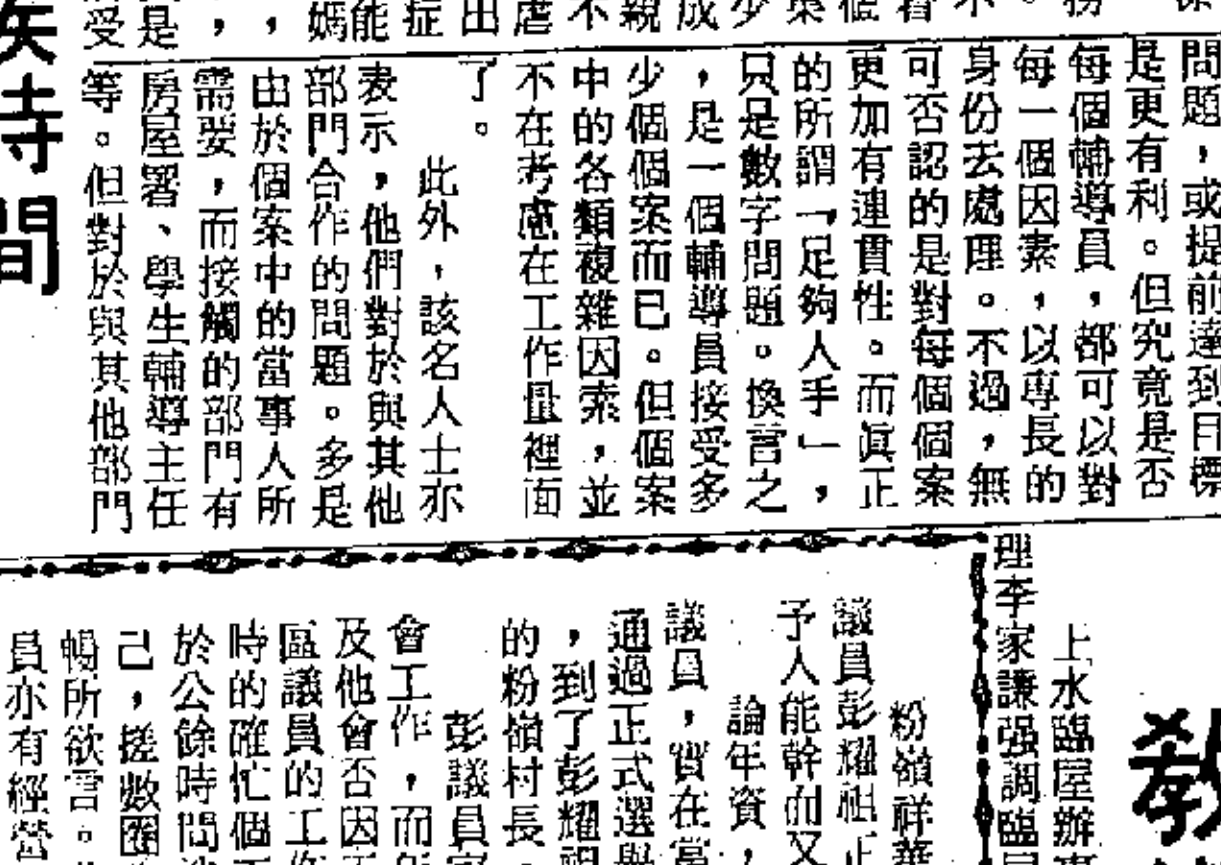 問題，或提前達到目標
是更有利。但究竟是否
每個輔導員，都可以對
每一個因素，以專長的
身份去處理。不過，無
可否認的是對每個個案
更加有連貫性。而眞正
的所謂「足夠人手」，
只是數字問題。換言之
，是一個輔導員接受多
少個個案而已。但個案
中的各類複雜因索，並
不在考慮在工作量裡面
了。
此外，該名人士亦
表示，他們對於與其他
部門合作的問題。多是
由於個案中的當事人所
需要，而接觸的部門有
房屋署、學生輔導主任
等。但對於與其他部門
間
上水臨屋辦
理李家謙强調臨
粉嶺祥華
議員彭耀祖正
予人能幹而又
論年資，
議員，實在當
通過正式選舉
，到了彭耀祖
的粉嶺村長，
彭議員
會工作，而
及他會否因
區議員的工作
時的確忙個不
於公餘時間
己，搓數圈
暢所欲言。
員亦有經營